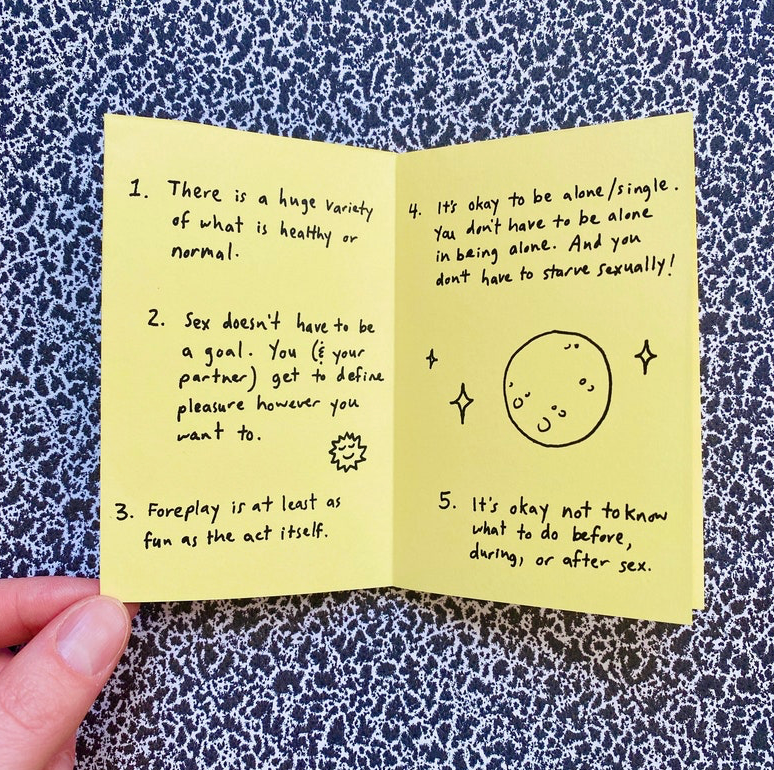 1. There is a huge variety
of what is healthy or
normal.
2. Sex doesn't have to be
a goal. You (& your
partner) get to define
pleasure however you
want to.
3. Foreplay is at least as
fun as the act itself.
4. It's okay to be alone/single.
You don't have to be alone
in being alone. And you
don't have to starve sexually!
5. It's okay not to know
what to do before,
during, or after sex.